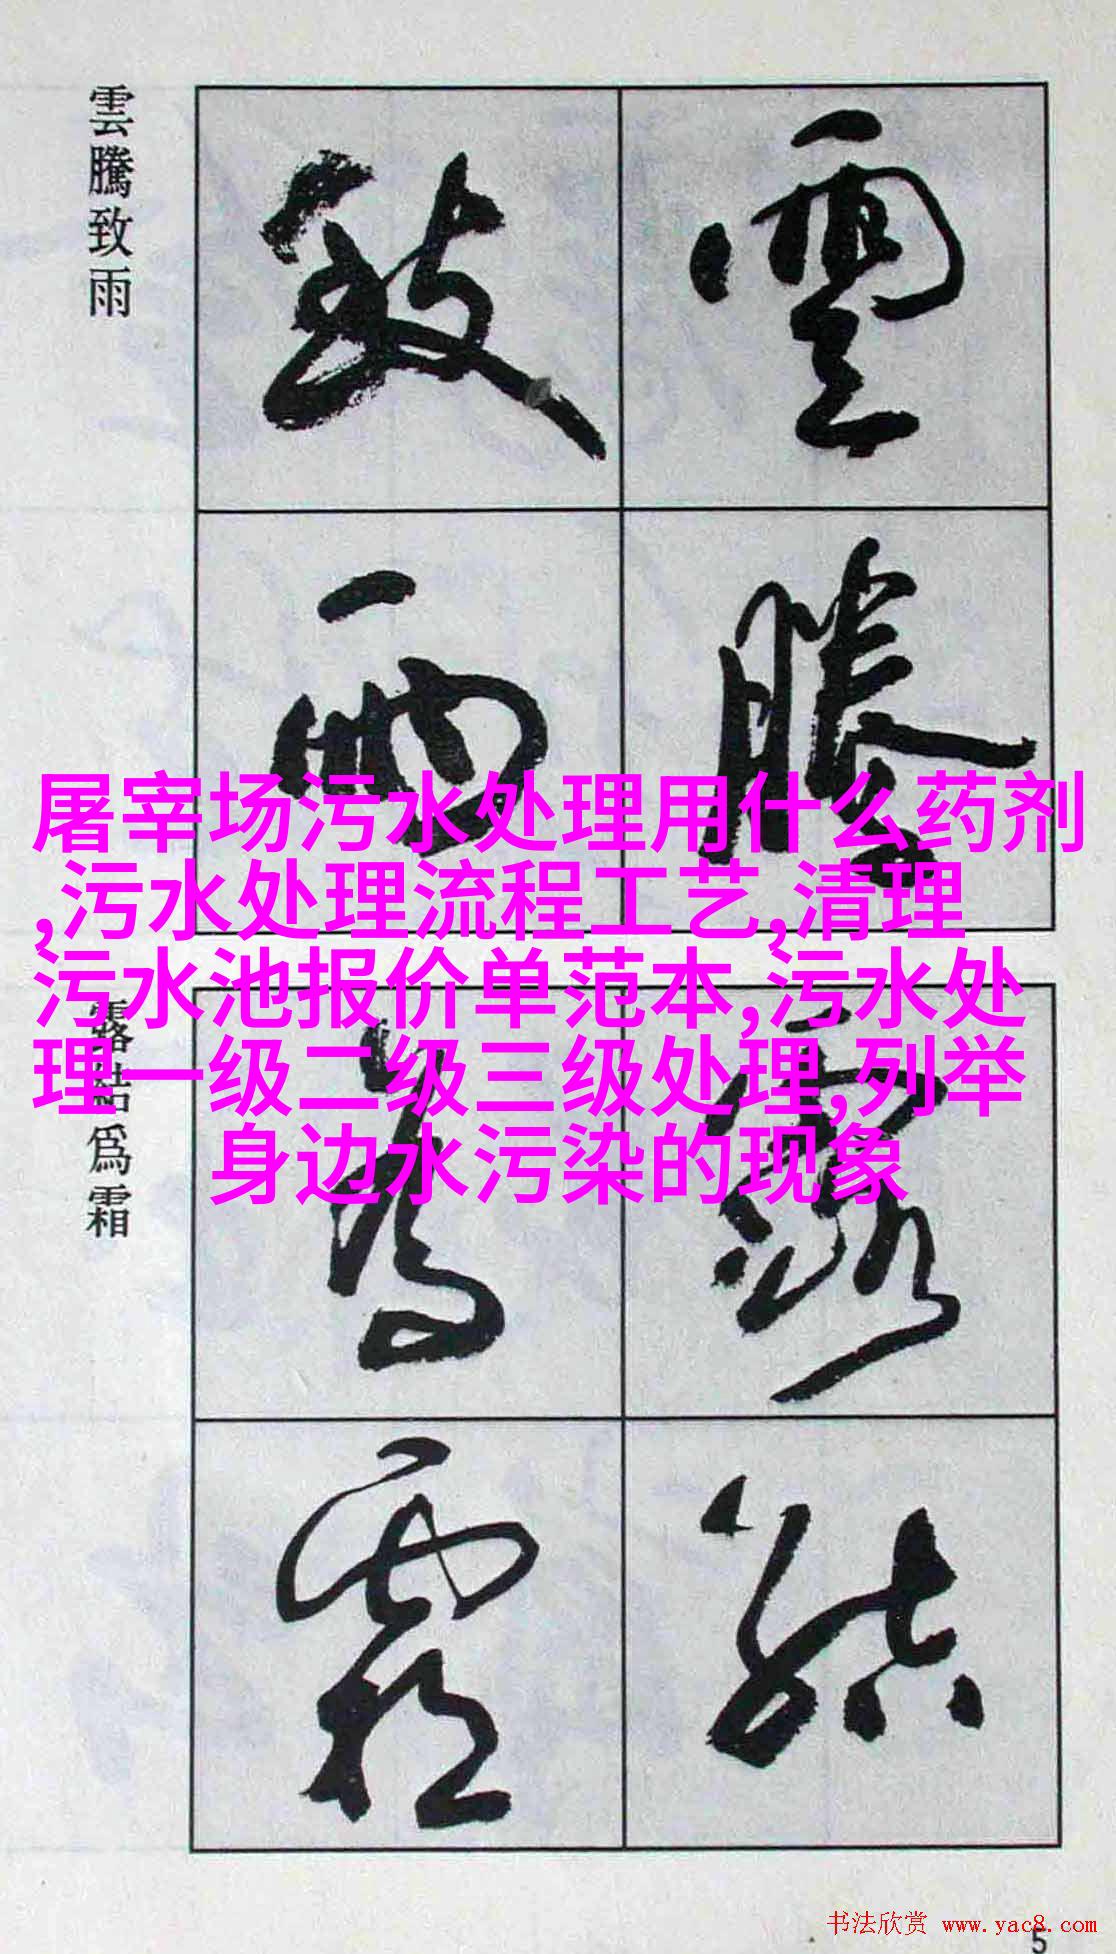 雲騰致雨
雲
騰
致
雨
屠宰场污水处理用什么药剂
,污水处理流程工艺,清理
污水池报价单范本,污水处
理一级二级三级处理,列举
身边水污染的现象
露結爲霜
露
結
爲
霜
书法欣赏 www.yac8.com
5